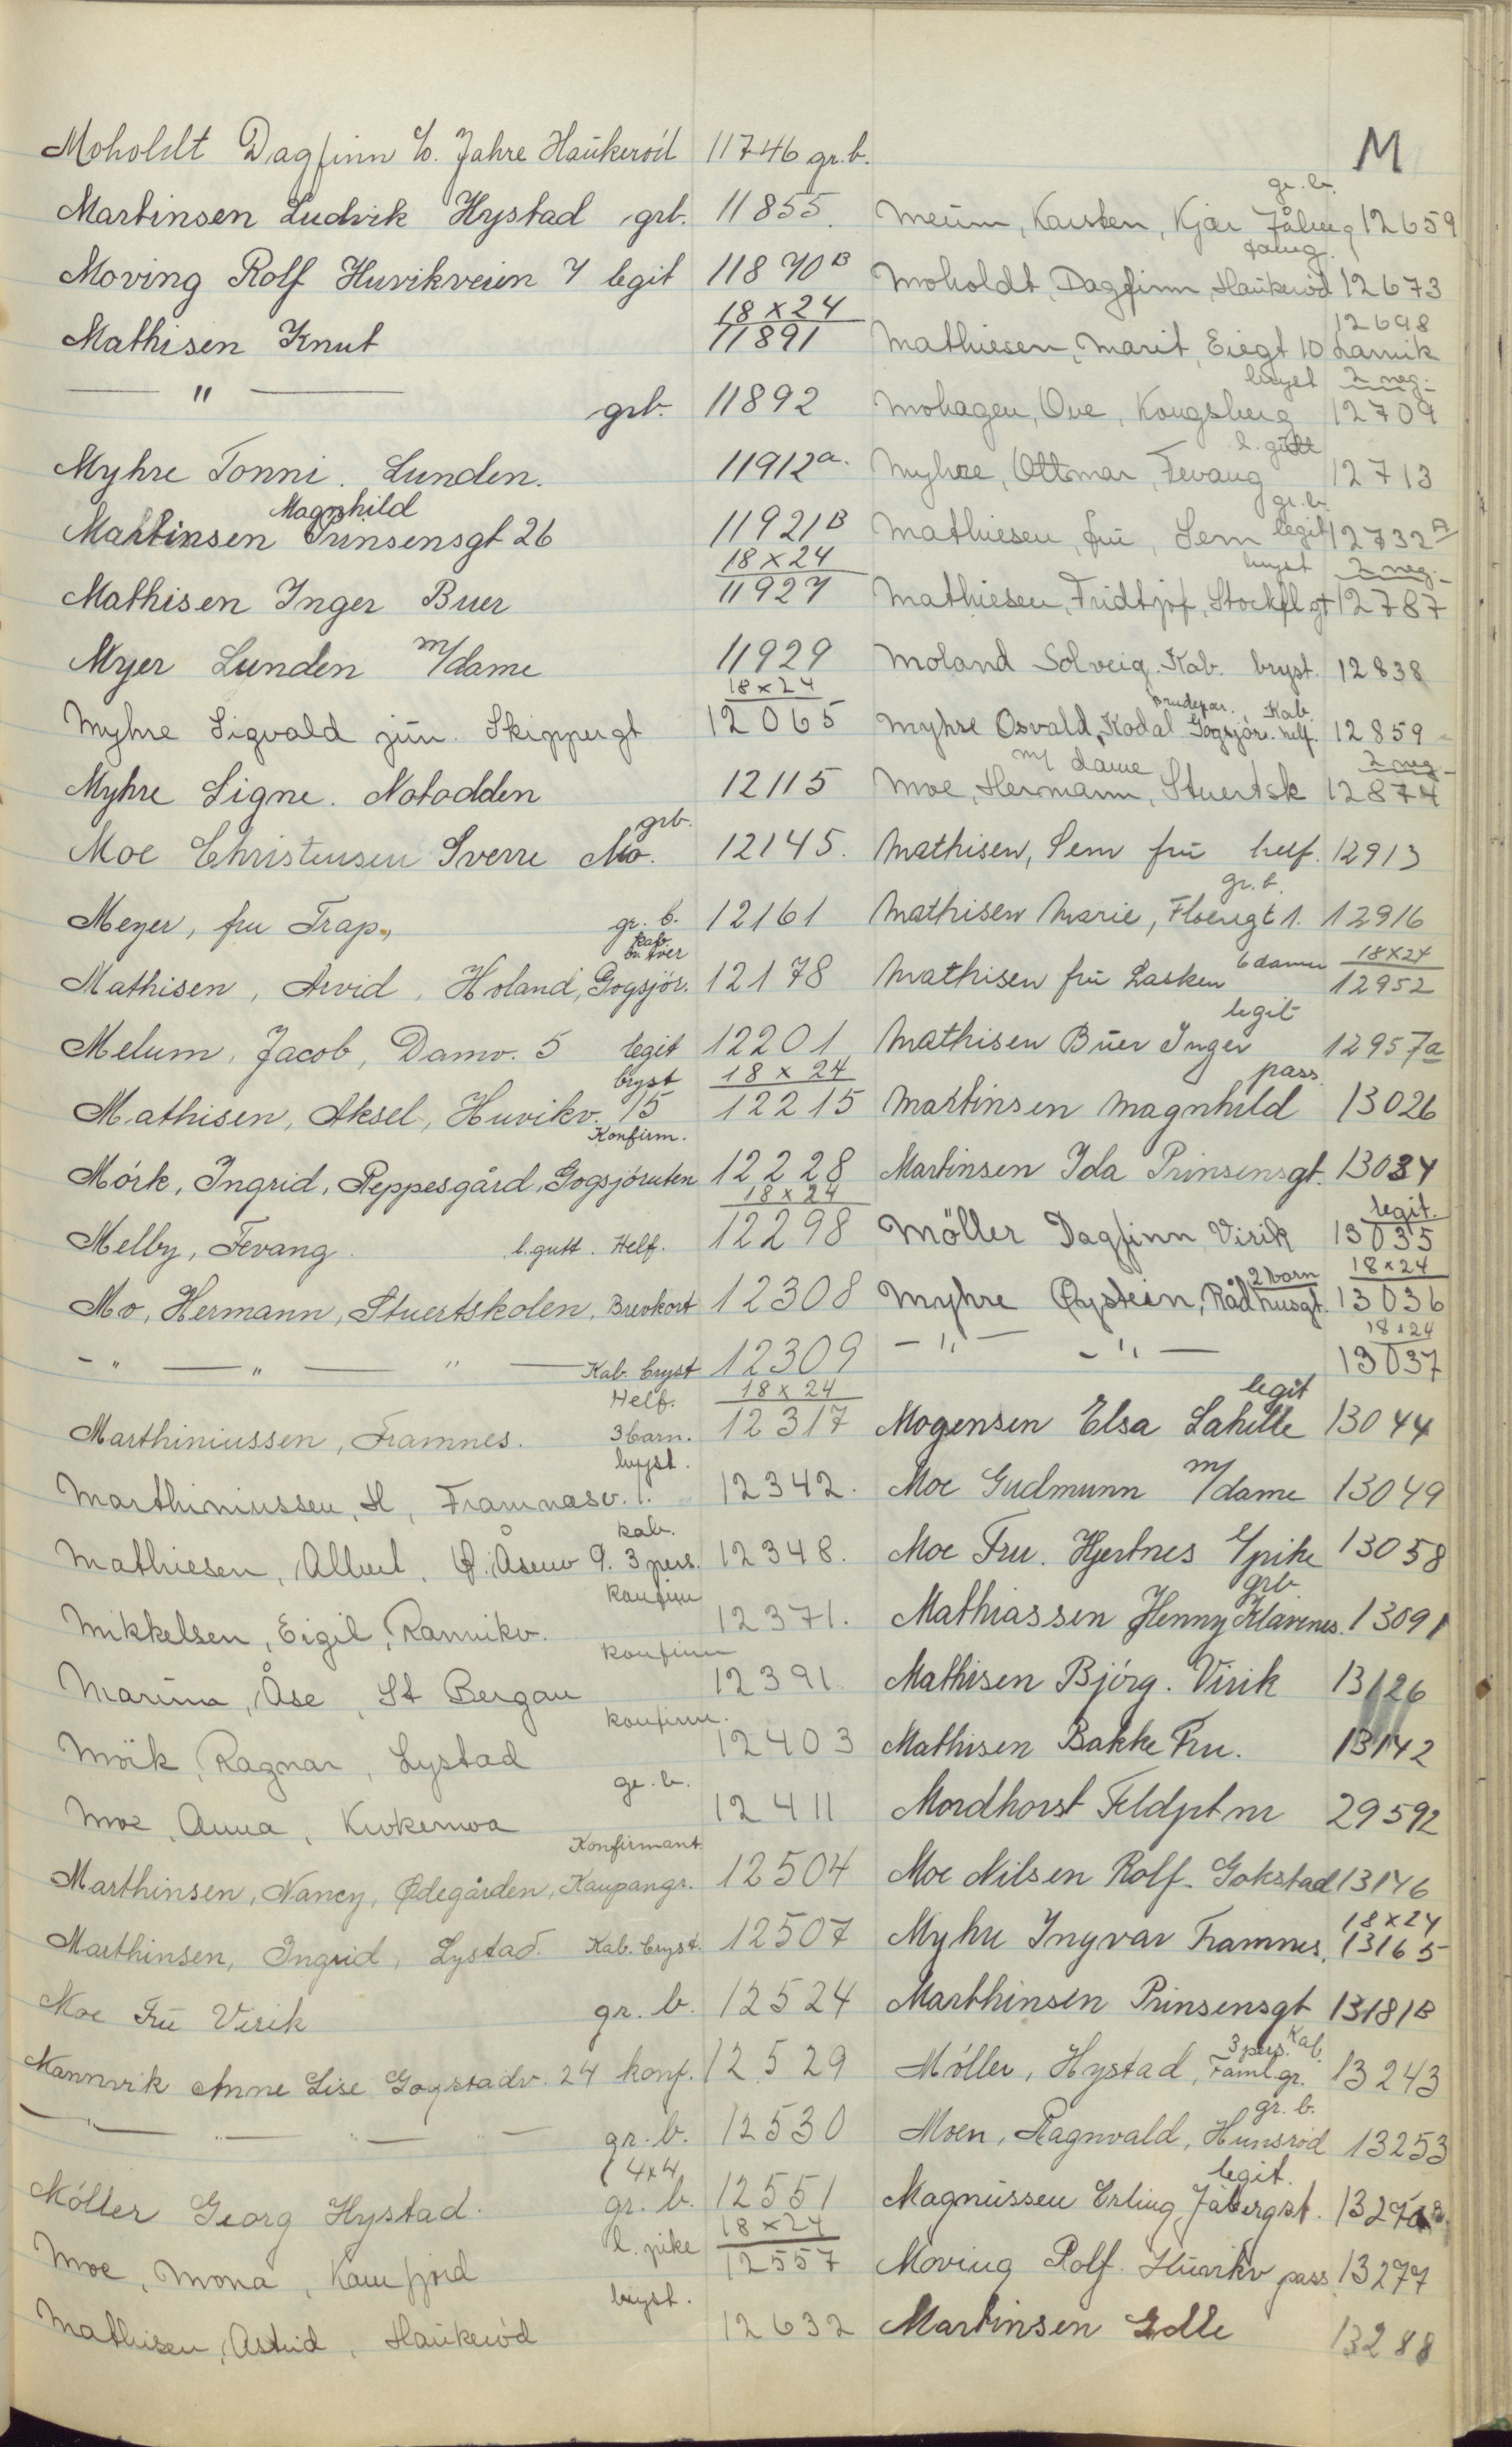 M
Moholdt Dagfinn c/o. Jahre Haukeröd 11746 gr.b.
Martinsen Ludvik Hystad grb. 11855.
Moving Rolf Huvikveien 7 legit 11870B
Mathisen Knut 18x24 11891
— " — grb. 11892
Myhre Tonni. Lunden. 11912a.
Martinsen Magnhild Prinsensgt 26 11921B
Mathisen Inger Buer 18x24 11927
Myer Lunden m/dame 11929
Myhre Sigvald jun. Skippergt 18x24 12065
Myhre Signe. Notodden 12115
Moe Christensen Sverre Mo. grb. 12145.
Meyer, fru Trap., gr. b. 12161
Mathisen, Arvid, Holand, Gogsjör. kab. br. tver 12178
Melum, Jacob, Damv. 5 legit 12201
Mathisen, Aksel, Huvikv. 15 bryst 18x24 12215
Mörk, Ingrid, Reppesgård, Gogsjöruten Konfirm. 12228
Melby, Fevang. l. gutt. Helf. 18x24 12298
Mo, Hermann, Stuertskolen, Brevkort 12308
- " — " — " — Kab. bryst 12309
Marthiniussen, Framnes. Helf. 3 barn. 18x24 12317
Marthiniussen, H, Framnesv. 1. bryst. 12342.
Mathiesen, Albert, Ø. Åsenv 9. 3 pers. kab. 12348.
Mikkelsen, Eigil, Ranvikv. konfirm 12371.
Marina, Åse, St Bergan konfirm 12391.
Mörk, Ragnar, Lystad konfirm. 12403
Moe, Anna, Krokemoa gr. b. 12411
Marthinsen, Nancy, Ødegården, Kaupangr. Konfirmant. 12504
Marthinsen, Ingrid, Lystad. Kab. bryst. 12507
Moe Fru Virik gr. b. 12524
Mannvik Anne Lise Gogstadv. 24 konf. 12529
— " — " — " — gr. b. 12530
Möller Georg Hystad. 4x4 gr. b. 12551
Moe, Mona, Kamfjord l. pike 18x24 12557
Mathisen, Astrid, Haukeröd bryst. 12632
Meum, Karsten, Kjær Jåberg gr. b. 12659
Moholdt, Dagfinn, Haukeröd 12673
Mathiesen, Marit, Eiegt 10 Larvik 12698
Mohagen, Ove, Kongsberg bryst 2 neg. 12709
Myhre, Ottmar, Fevang l. gutt 12713
Mathiesen, fru, Sem gr. b. legit 12732A
Mathiesen, Fridtjof, Stockflgt bryst 2 neg. 12787
Moland Solveig. Kab. bryst. 12838
Myhre Osvald, Kodal Gogsjör. Brudepar. Kab. helf. 12859
Moe, Hermann, Stuertsk m/ dame 2 neg. 12874
Mathisen, Sem fru helf. 12913
Mathisen Marie, Floengt 1. gr. b. 12916
Mathisen fru Lasken 6 damer 18x24 12952
Mathisen Buer Inger legit 12957a
Martinsen Magnhild pass. 13026
Martinsen Ida Prinsensgt. 13034
Möller Dagfinn Virik legit. 13035
Myhre Øystein, Rådhusgt. 2 barn 18x24 13036
- " — - " — 18x24 13037
Mogensen Elsa Lahelle legit 13044
Moe Gudmunn m/dame 13049
Moe Fru. Hjertnes S/pike 13058
Mathiassen Henny Klavenes. grb 13091
Mathisen Björg. Virik 13126
Mathisen Bakke Fru. 13142
Mordhorst Feldpt nr 29592
Moe Nilsen Rolf. Gokstad 13146
Myhre Ingvar Framnes. 18x24 13165
Marthinsen Prinsensgt 13181B
Möller, Hystad, Faml.gr. 3 pers. Kab. 13243
Moen, Ragnvald, Hunsröd gr. b. 13253
Magnussen Erling Jåbergst. legit.
Moving Rolf. Huvikv pass 13277
Martinsen Edle 13288